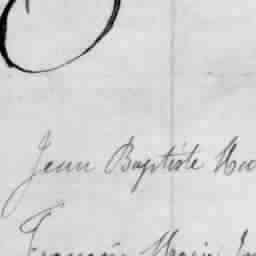 Jean Baptiste
François Marie